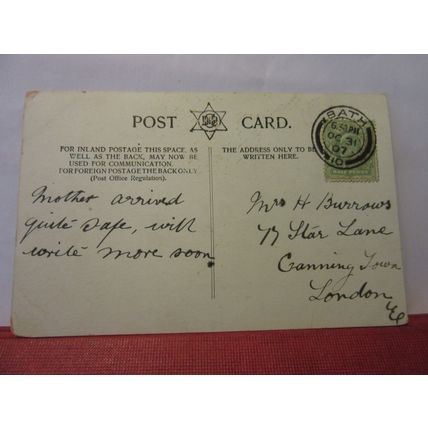 POST CARD.
FOR INLAND POSTAGE THIS SPACE, AS
WELL AS THE BACK, MAY NOW BE
USED FOR COMMUNICATION.
FOR FOREIGN POSTAGE THE BACK ONLY.
(Post Office Regulation).
THE ADDRESS ONLY TO BE
WRITTEN HERE.
BATH
6.30 PM
OC 31
07
HALF PENNY
Mother arrived
quite safe, will
write more soon
Mrs H Burrows
Star Lane
Canning Town
London
E